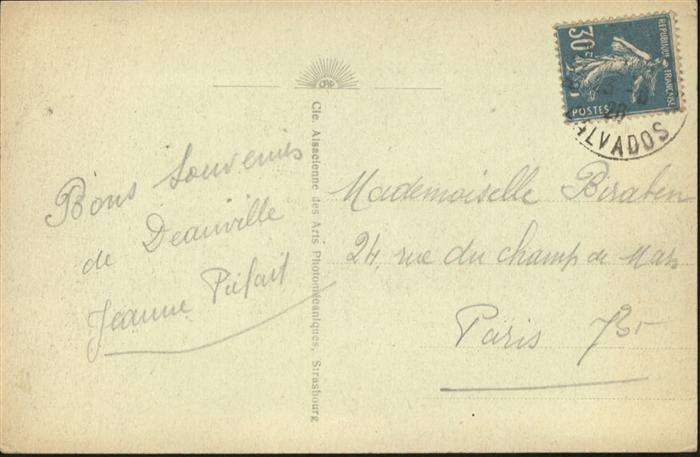 Bons souvenirs
de Deauville
Jeanne
Cie. Alsacienne des Arts Photomécaniques, Strasbourg
30c
POSTES
REPUBLIQUE FRANÇAISE
LVADOS
Mademoiselle Biraben
24, rue du champ de Mars
Paris 7er